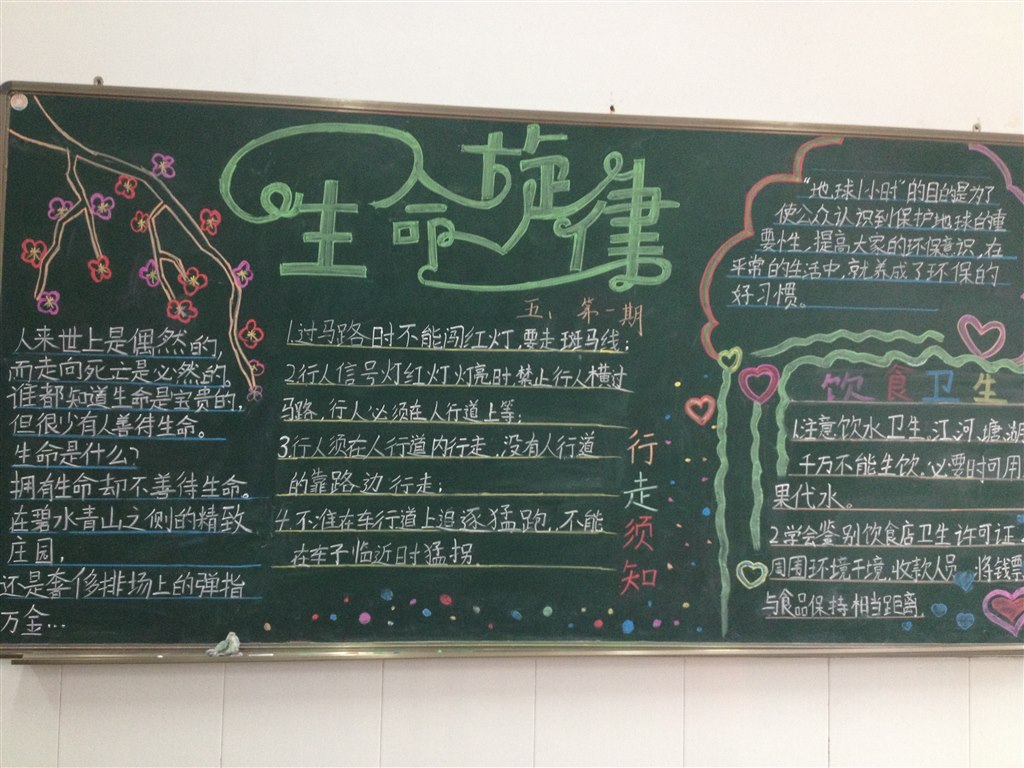 生命旋律
五、第一期
人来世上是偶然的,
而走向死亡是必然的。
谁都知道生命是宝贵的,
但很少有人善待生命。
生命是什么?
拥有生命却不善待生命。
在碧水青山之侧的精致
庄园,
还是奢侈排场上的弹指
万金…
1过马路时不能闯红灯,要走斑马线;
2行人信号灯红灯灯亮时,禁止行人横过
马路,行人必须在人行道上等;
3.行人须在人行道内行走,没有人行道
的靠路边行走;
4.不准在车行道上追逐猛跑,不能
在车子临近时猛拐.
行走须知
"地球1小时"的目的是为了
使公众认识到保护地球的重
要性,提高大家的环保意识,在
平常的生活中,就养成了环保的
好习惯。
饮食卫生
1.注意饮水卫生,江河,塘,湖
千万不能生饮,必要时可用
果代水。
2学会鉴别饮食店卫生许可证
周围环境干境,收款人员,将钱票
与食品保持相当距离.